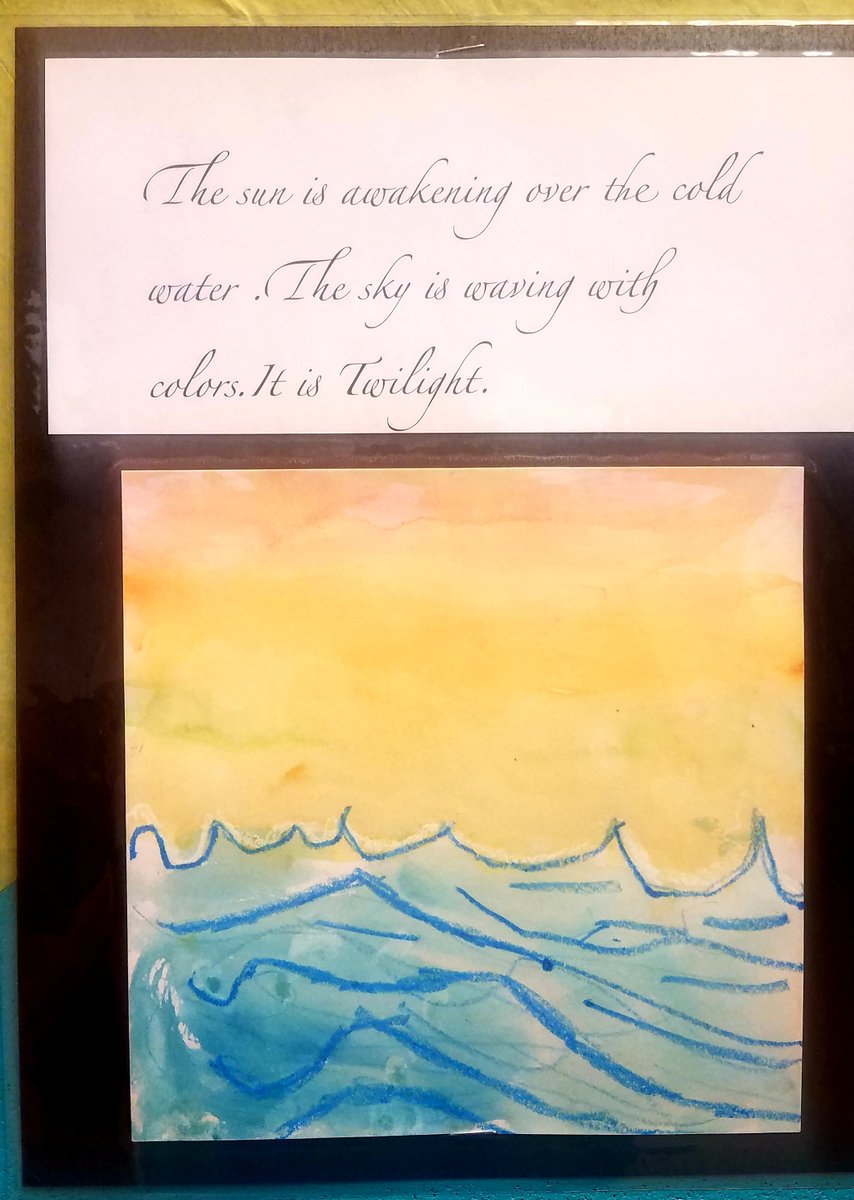 The sun is awakening over the cold
water .The sky is waving with
colors.It is Twilight.